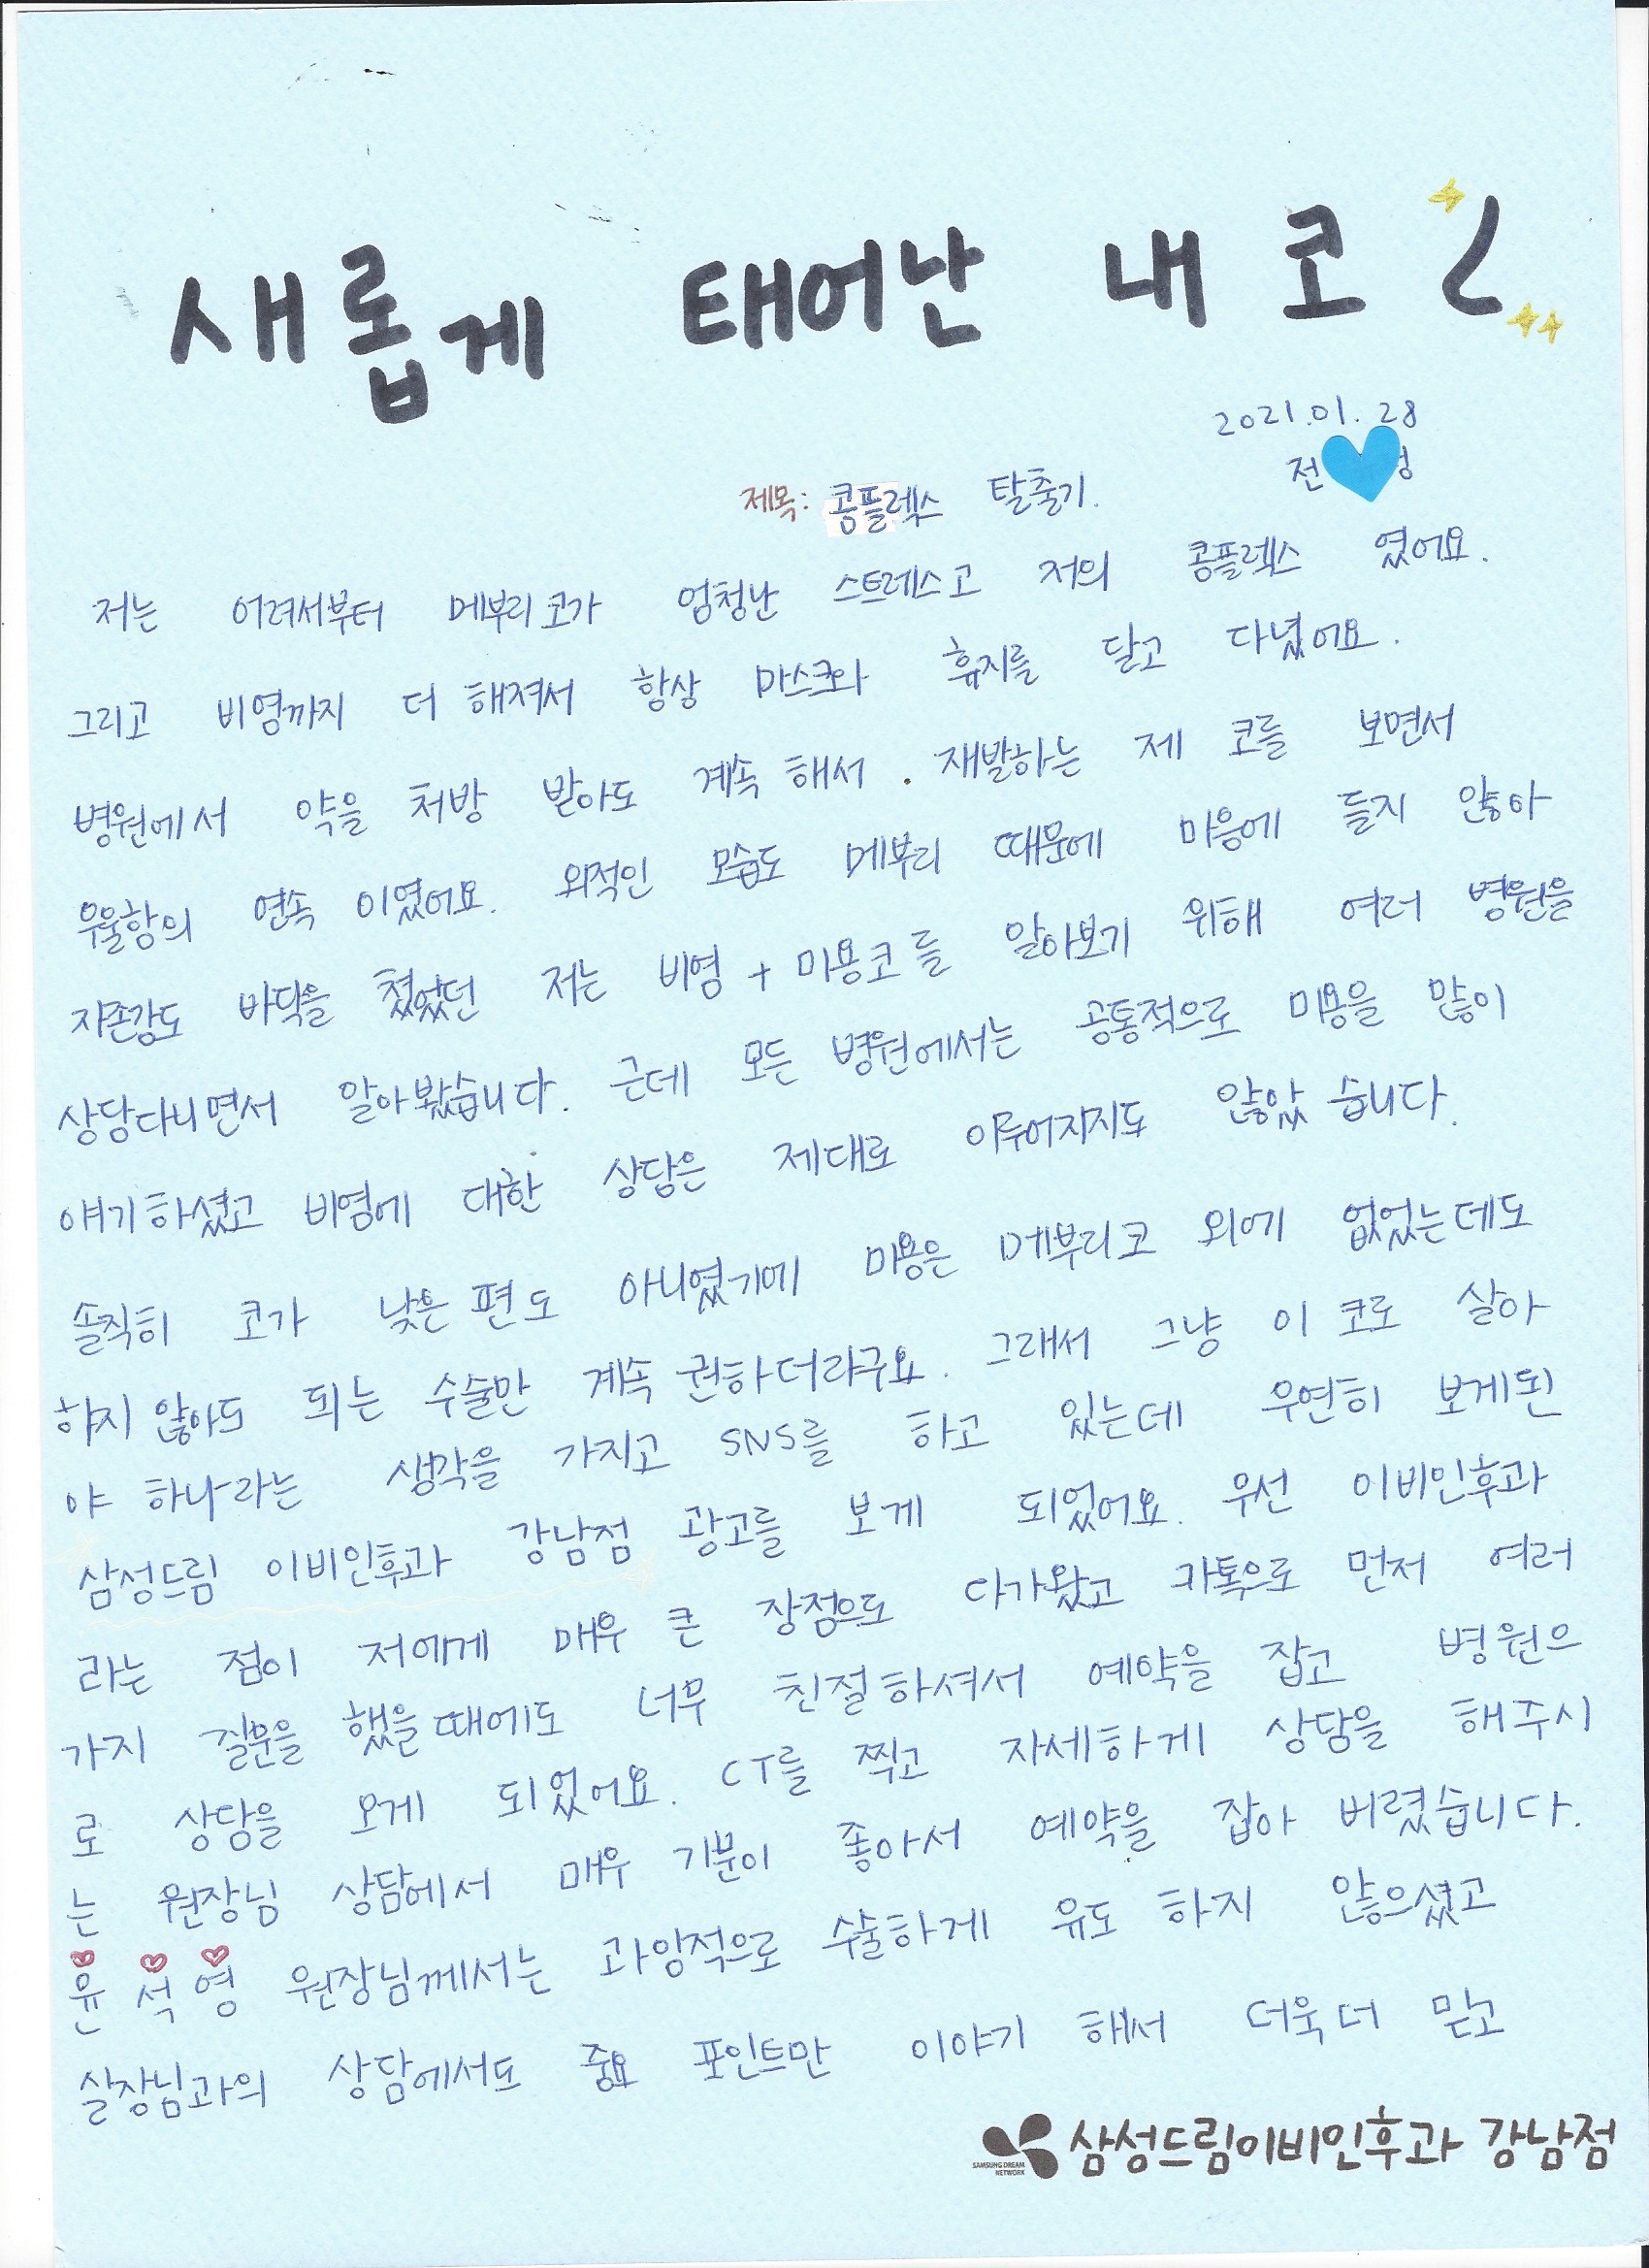 새롭게 태어난 내 코
2021.01.28
전
제목: 콤플렉스 탈출기.
저는 어려서부터 메부리코가 엄청난 스트레스고 저의 콤플렉스 였어요.
그리고 비염까지 더해져서 항상 마스크와 휴지를 달고 다녔어요.
병원에서 약을 처방 받아도 계속해서 재발하는 제 코를 보면서
우울함의 연속 이였어요. 외적인 모습도 메부리 때문에 마음에 들지 않아
자존감도 바닥을 쳤었던 저는 비염 + 미용코를 알아보기 위해 여러 병원을
상담다니면서 알아봤습니다. 근데 모든 병원에서는 공통적으로 미용을 많이
얘기하셨고 비염에 대한 상담은 제대로 이루어지지도 않았습니다.
솔직히 코가 낮은편도 아니였기에 미용은 메부리코 외에 없었는데도
하지 않아도 되는 수술만 계속 권하더라구요. 그래서 그냥 이 코로 살아
야 하나라는 생각을 가지고 SNS를 하고 있는데 우연히 보게된
삼성드림 이비인후과 강남점 광고를 보게 되었어요. 우선 이비인후과
라는 점이 저에게 매우 큰 장점으로 다가왔고 카톡으로 먼저 여러
가지 질문을 했을때에도 너무 친절하셔서 예약을 잡고 병원으
로 상담을 오게 되었어요. CT를 찍고 자세하게 상담을 해주시
는 원장님 상담에서 매우 기분이 좋아서 예약을 잡아 버렸습니다.
윤석영 원장님께서는 과잉적으로 수술하게 유도 하지 않으셨고
실장님과의 상담에서도 중요 포인트만 이야기 해서 더욱더 믿고
SAMSUNG DREAM NETWORK 삼성드림이비인후과 강남점